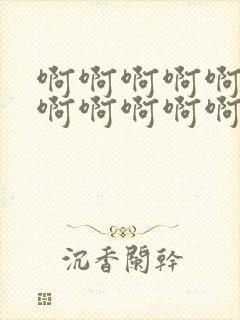 啊啊啊啊啊
啊啊啊啊啊
沉香阑幹